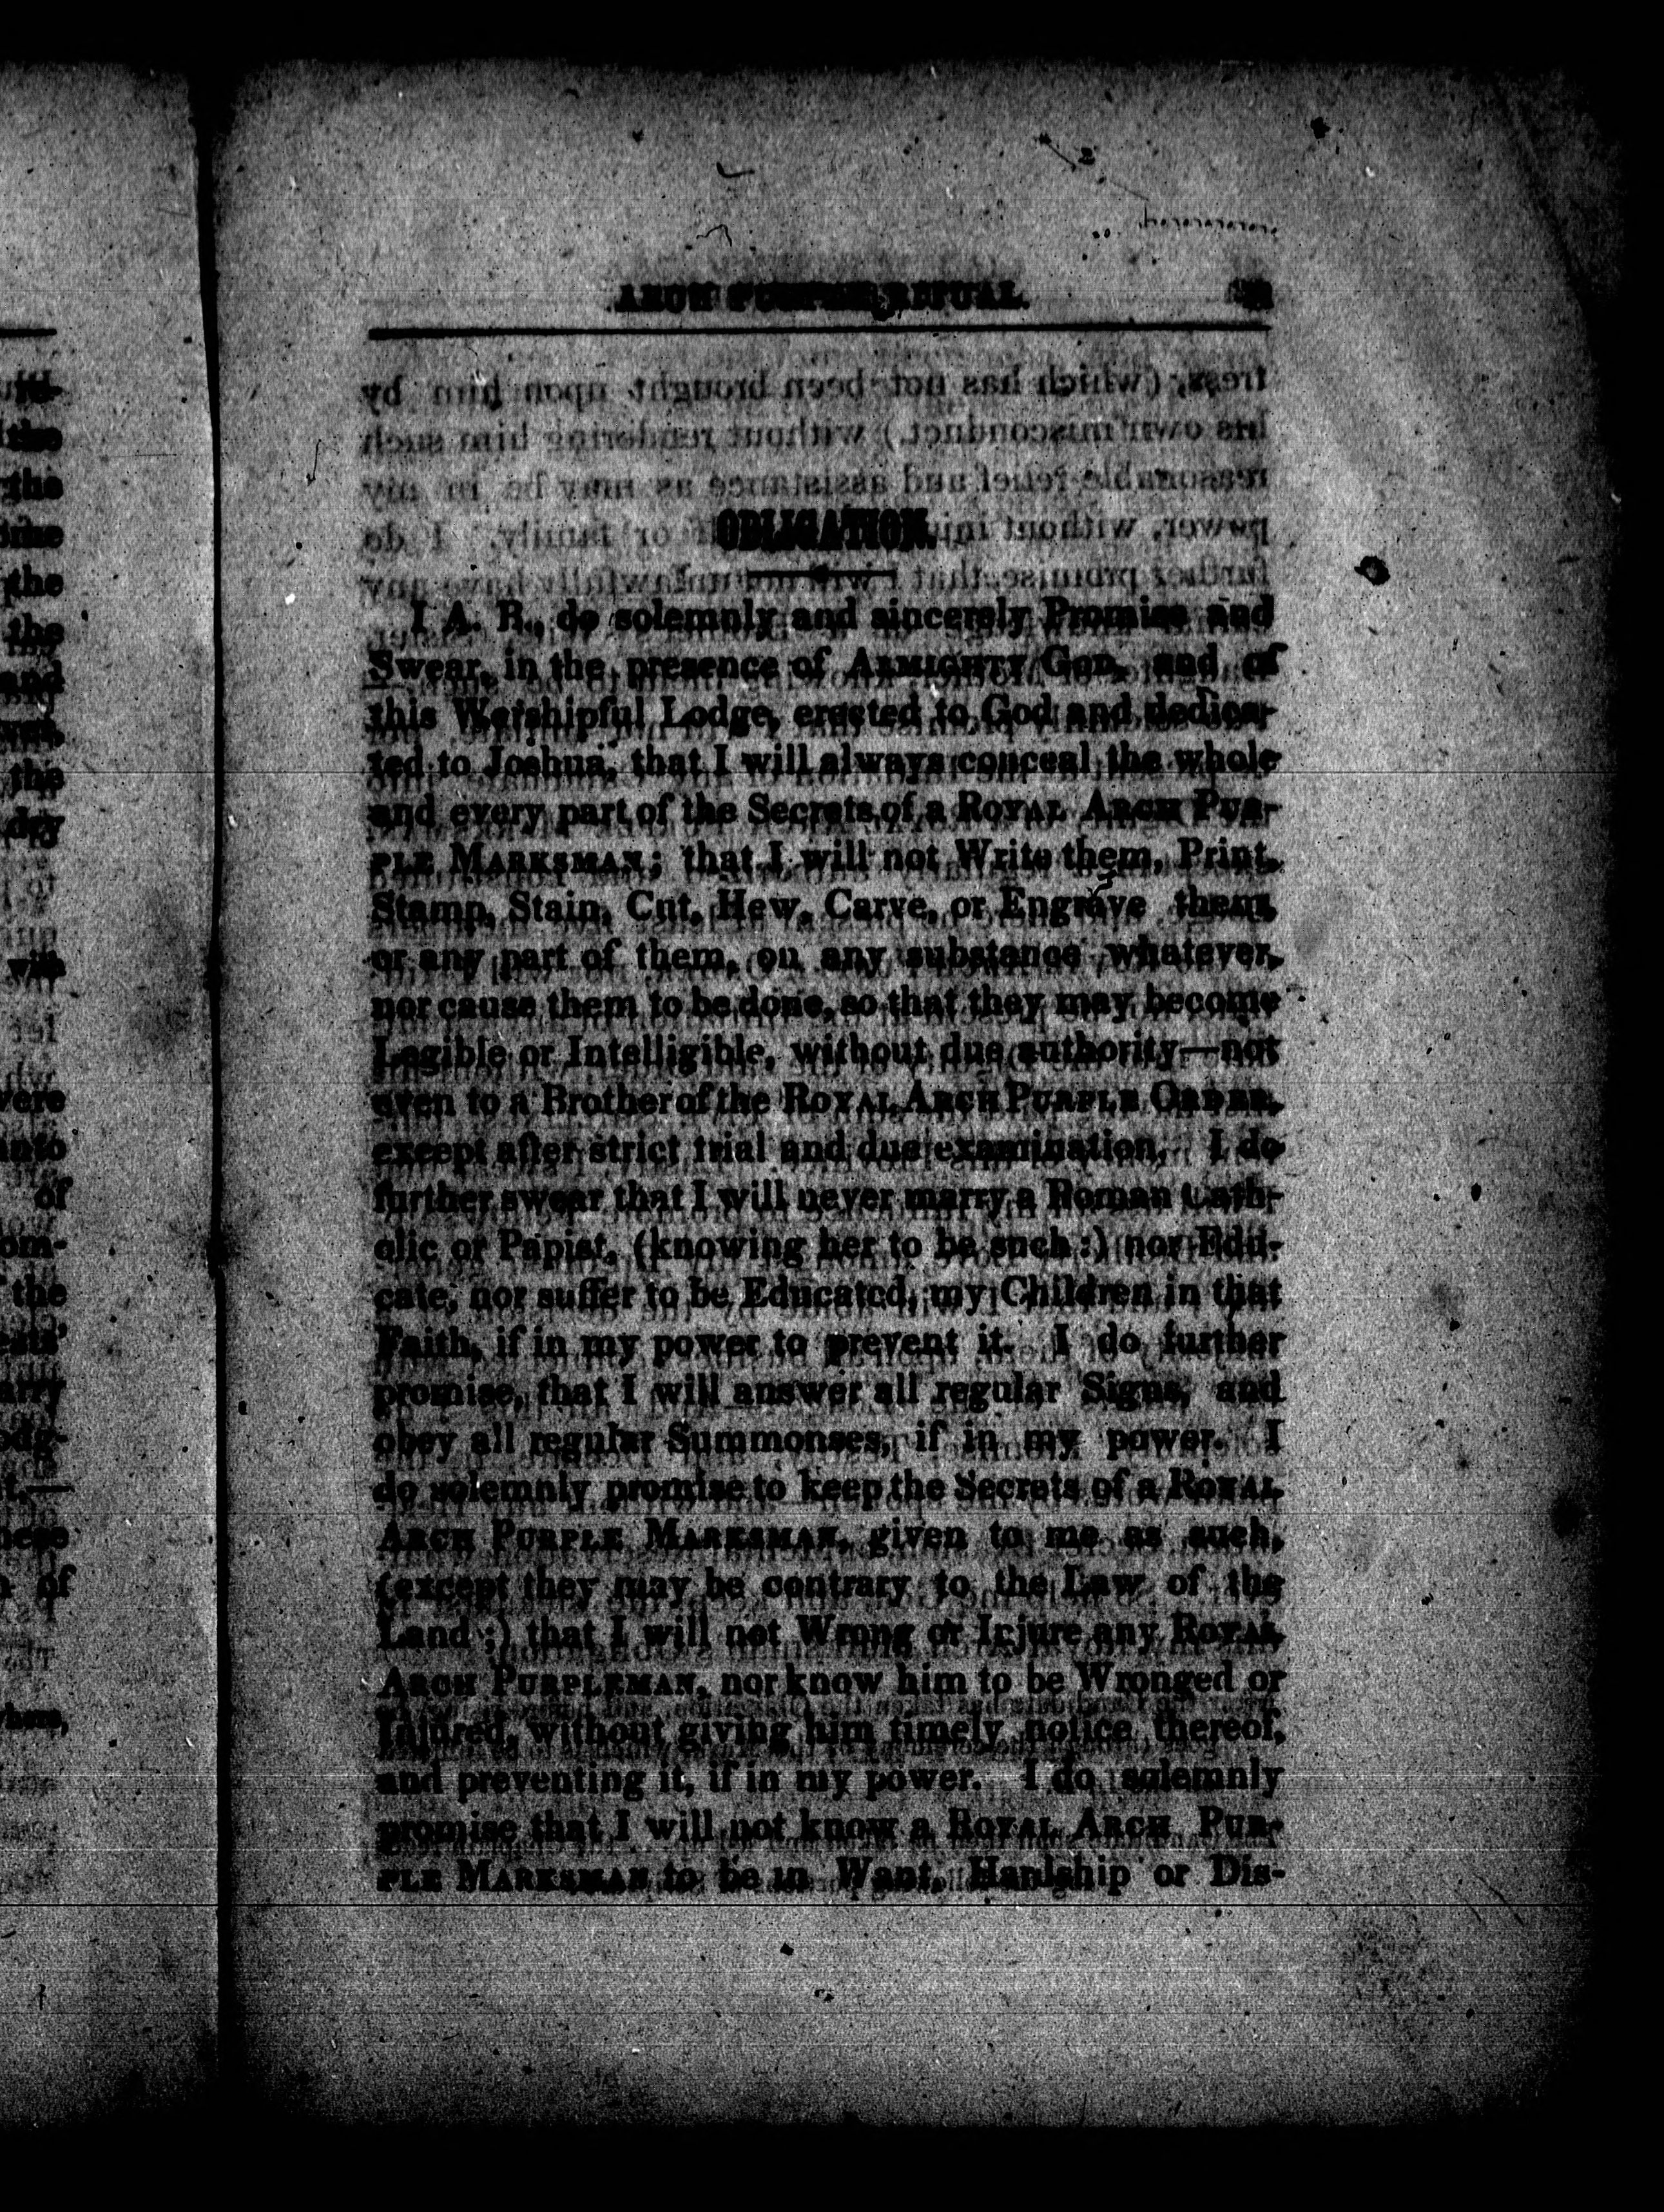 ARCH PURPLE RITUAL.
OBLIGATION.
I A. B., do solemnly and sincerely Promise and
Swear, in the presence of ALMIGHTY GOD, and of
this Worshipful Lodge, erected to God and dedica-
ted to Joshua, that I will always conceal the whole
and every part of the Secrets of a ROYAL ARCH PUR-
PLE MARKSMAN; that I will not Write them, Print,
Stamp, Stain, Cut, Hew, Carve, or Engrave them,
or any part of them, on any substance whatever,
nor cause them to be done, so that they may become
Legible or Intelligible, without due authority—not
even to a Brother of the ROYAL ARCH PURPLE ORDER,
except after strict trial and due examination. I do
further swear that I will never marry a Roman Cath-
olic or Papist, (knowing her to be such:) nor Edu-
cate, nor suffer to be Educated, my Children in that
Faith, if in my power to prevent it. I do further
promise, that I will answer all regular Signs, and
obey all regular Summonses, if in my power. I
do solemnly promise to keep the Secrets of a ROYAL
ARCH PURPLE MARKSMAN, given to me as such,
(except they may be contrary to the Law of the
Land:) that I will not Wrong or Injure any ROYAL
ARCH PURPLEMAN, nor know him to be Wronged or
Injured, without giving him timely notice thereof,
and preventing it, if in my power. I do solemnly
promise that I will not know a ROYAL ARCH PUR-
PLE MARKSMAN to be in Want, Hardship or Dis-